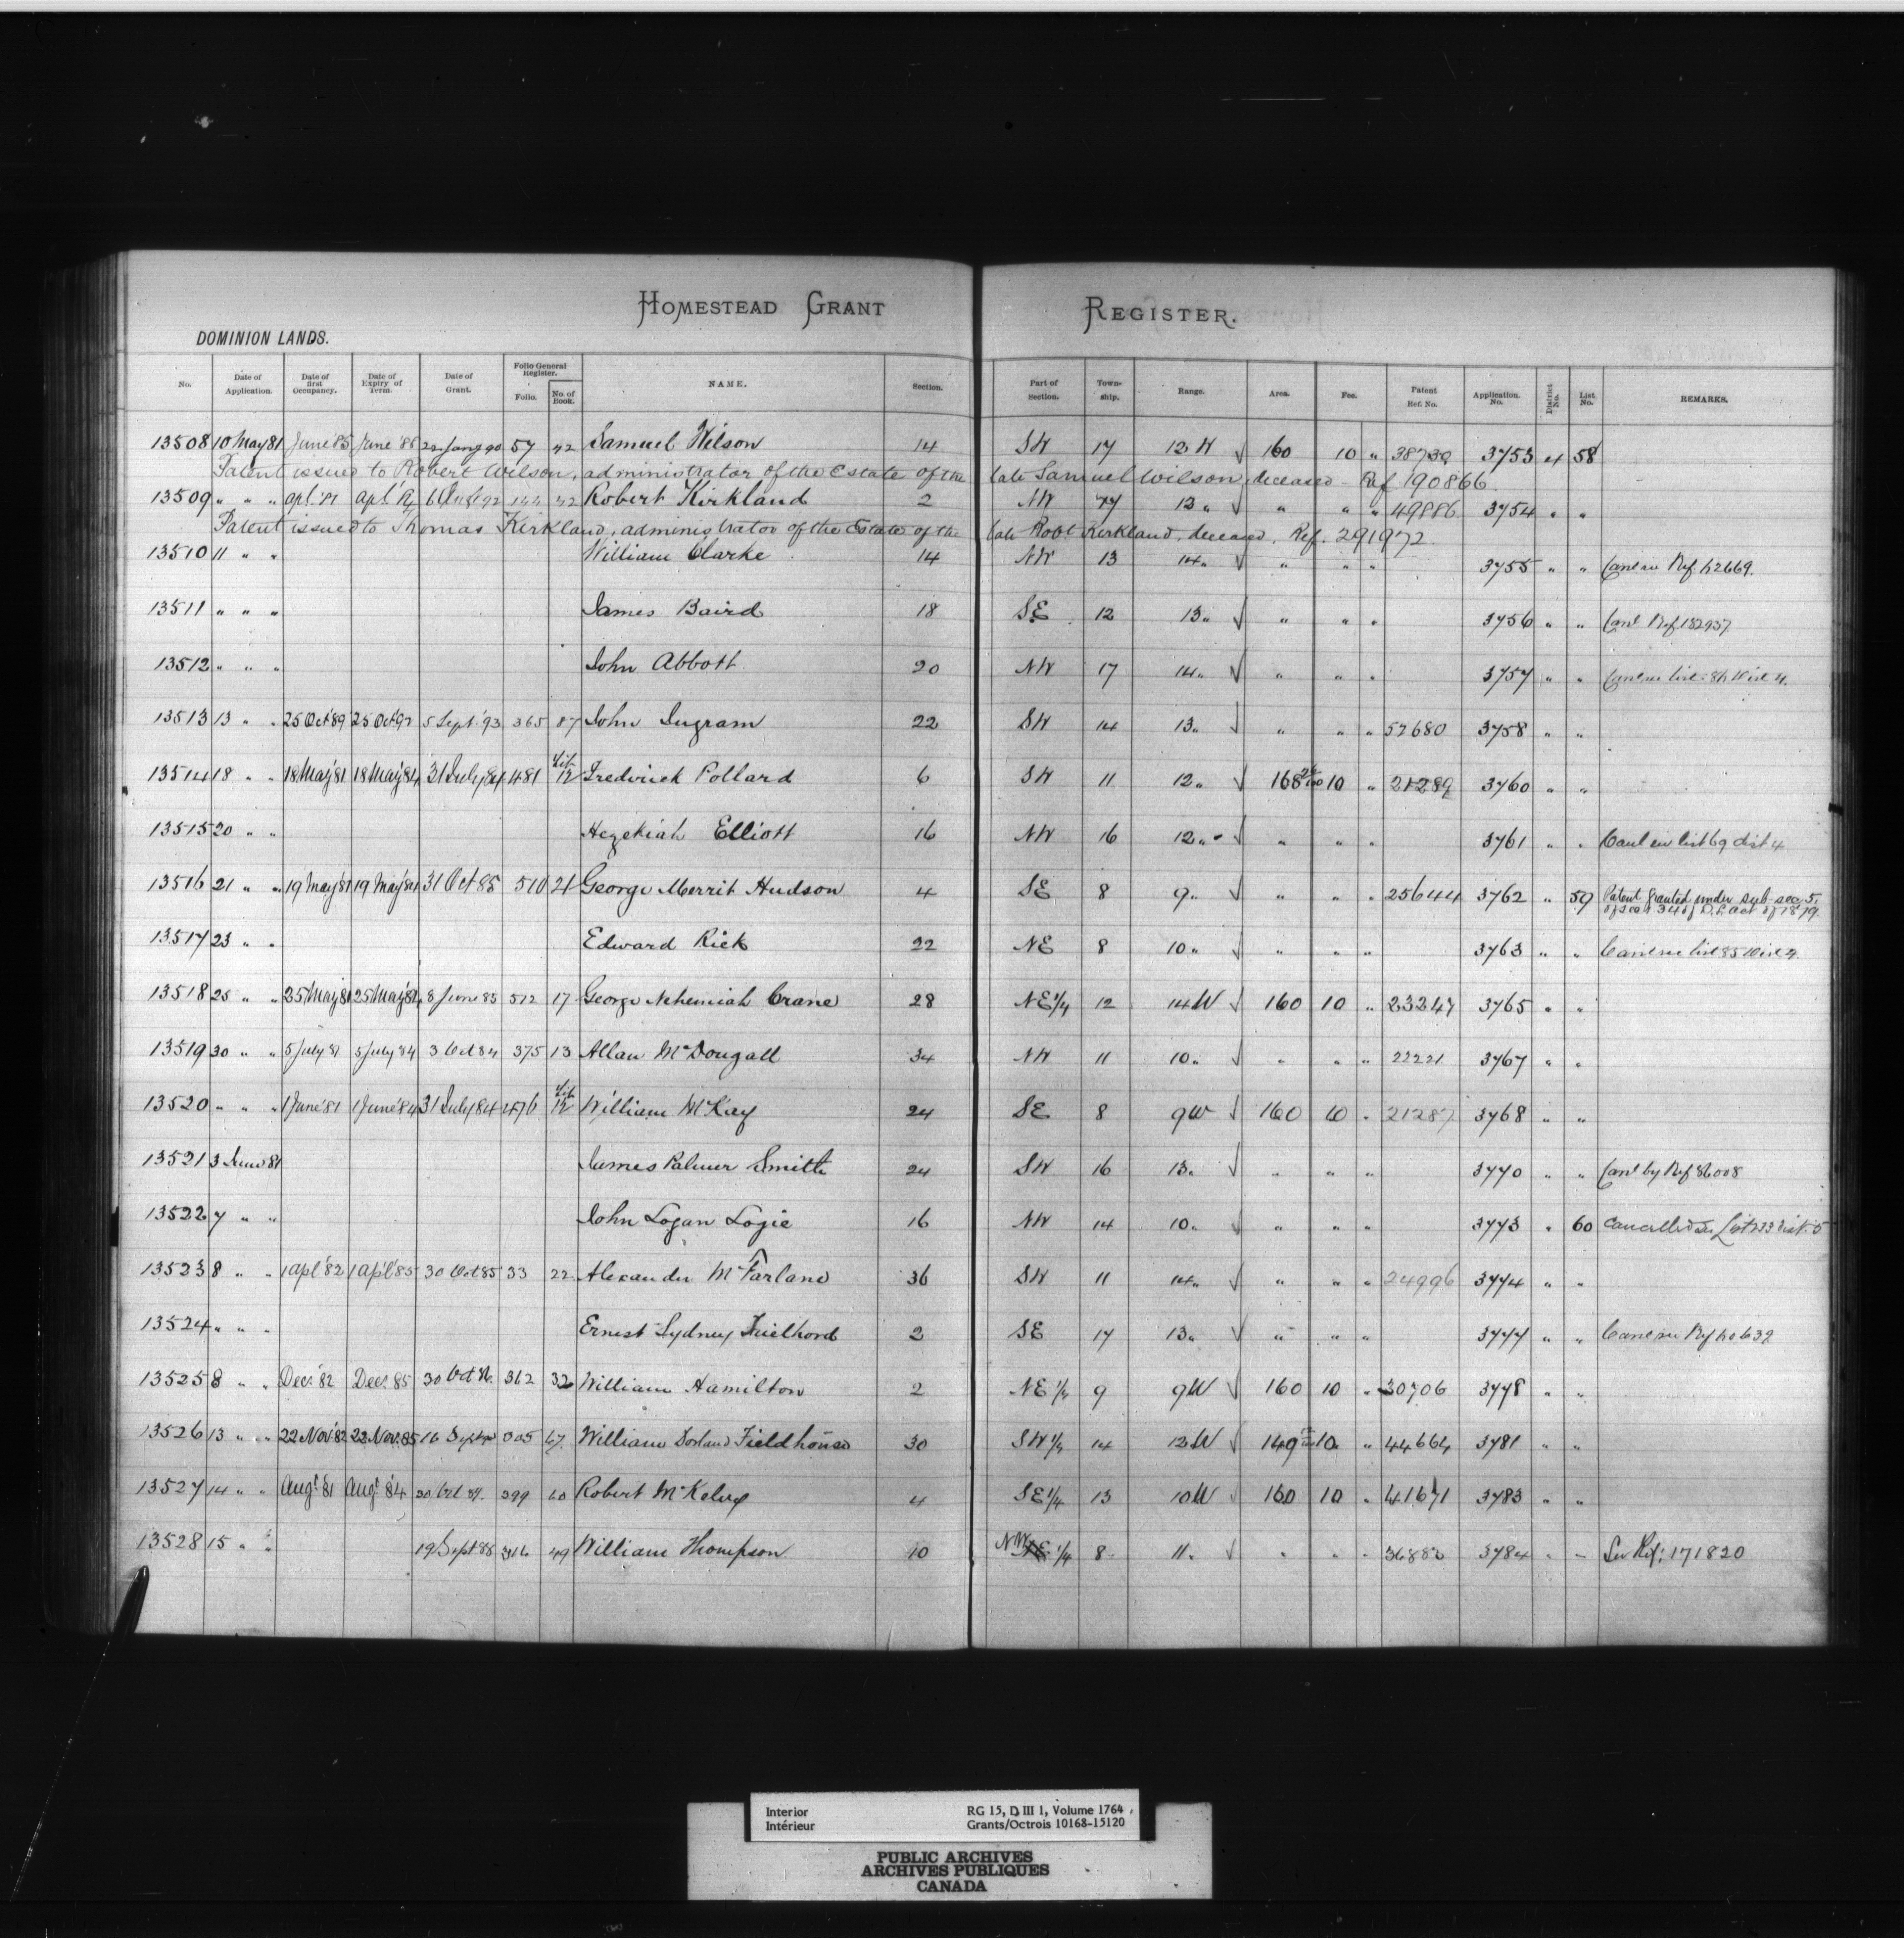 HOMESTEAD GRANT REGISTER.
DOMINION LANDS.
No. Date of Application. Date of first Occupancy. Date of Expiry of Term. Date of Grant. Folio General Register. Folio. No. of Book. NAME. Section. Part of Section. Township. Range. Area. Fee. Patent Ref. No. Application No. District No. List No. REMARKS.
13508 10 May 81 June '85 June '88 90 57 42 Samuel Wilson 14 SW 17 13 W √ 160 10 " 38739 3753 4 58
Patent issued to Robert Wilson, administrator of the Estate of the late Samuel Wilson, deceased - Ref 190866.
13509 " " " Apl. Apl. 92 144 42 Robert Kirkland 2 NW 17 13 " " " " 49886 3754 " "
Patent issued to Thomas Kirkland, administrator of the Estate of the late Robt Kirkland, deceased. Ref. 291972.
13510 11 " " William Clarke 14 NW 13 14 " √ " " " 3755 " " Ref. 2669.
13511 " " " James Baird 18 SE 12 13 " √ " " " 3756 " " Canl Ref 182937
13512 " " " John Abbott 20 NW 17 14 " √ " " " 3757 " "
13513 13 " " 25 Oct '89 25 Oct 92 5 Sept. '93 365 87 John Ingram 22 SW 14 13 " √ " " " 57680 3758 " "
13514 18 " " 18 May '81 18 May '84 31 July 84 481 12 Frederick Pollard 6 SW 11 12 " √ 168 10 " 21289 3760 " "
13515 20 " " Hezekiah Elliott 16 NW 16 12 " √ " " " 3761 " " Canl in list 69 dist 4
13516 21 " " 19 May '81 19 May '84 31 Oct 85 510 21 George Merrit Hudson 4 SE 8 9 " √ " " " 25644 3762 " 59 Patent granted under sub-sec. 5. of sec 34 of D.L. Act of 1879.
13517 23 " " Edward Rick 22 NE 8 10 " √ " " " 3763 " "
13518 25 " " 25 May 81 25 May '84 8 June 85 512 17 George Nehemiah Crane 28 NE 1/4 12 14 W √ 160 10 " 23247 3765 " "
13519 30 " " 5 July 81 5 July 84 3 Oct 84 375 13 Allan McDougall 34 NW 11 10 " √ " " " 22221 3767 " "
13520 " " " 1 June '81 1 June '84 31 July 84 476 12 William McKay 24 SE 8 9 W √ 160 10 " 21287 3768 " "
13521 3 June 81 James Palmer Smith 24 SW 16 13 " √ " " " 3770 " " Canl by Ref 86008
13522 7 " " John Logan Logie 16 NW 14 10 " √ " " " 3773 " 60 Cancelled
13523 8 " " 1 Apl '82 1 Apl '85 30 Oct 85 33 22 Alexander McFarland 36 SW 11 14 " √ " " " 24996 3774 " "
13524 " " " Ernest Sydney 2 SE 17 13 " √ " " " 3777 " "
13525 8 " " Dec. '82 Dec. 85 30 Oct 362 32 William Hamilton 2 NE 1/4 9 9 W √ 160 10 " 30706 3778 " "
13526 13 " " 22 Nov. 82 22 Nov. 85 16 305 67 William Fieldhouse 30 SW 1/4 14 12 W √ 149 10 " 44664 3781 " "
13527 14 " " Augt. 81 Augt. 84 30 Oct 399 60 Robert McKelvy 4 SE 1/4 13 10 W √ 160 10 " 41671 3783 " "
13528 15 " " 19 Sept 88 316 49 William Thompson 10 NW 1/4 8 11 " √ " " " 3784 " " See Ref: 171820
Interior
Intérieur
RG 15, D III 1, Volume 1764
Grants/Octrois 10168-15120
PUBLIC ARCHIVES
ARCHIVES PUBLIQUES
CANADA